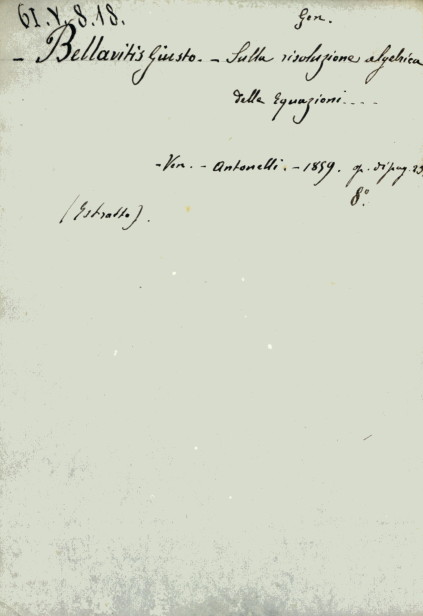 61.V.8.18.
Gen.
- Bellavitis Giusto. - Sulla risoluzione algebrica
delle Equazioni....
- Ven. - Antonelli. - 1859. op. di pag. 23
8°.
(Estratto).